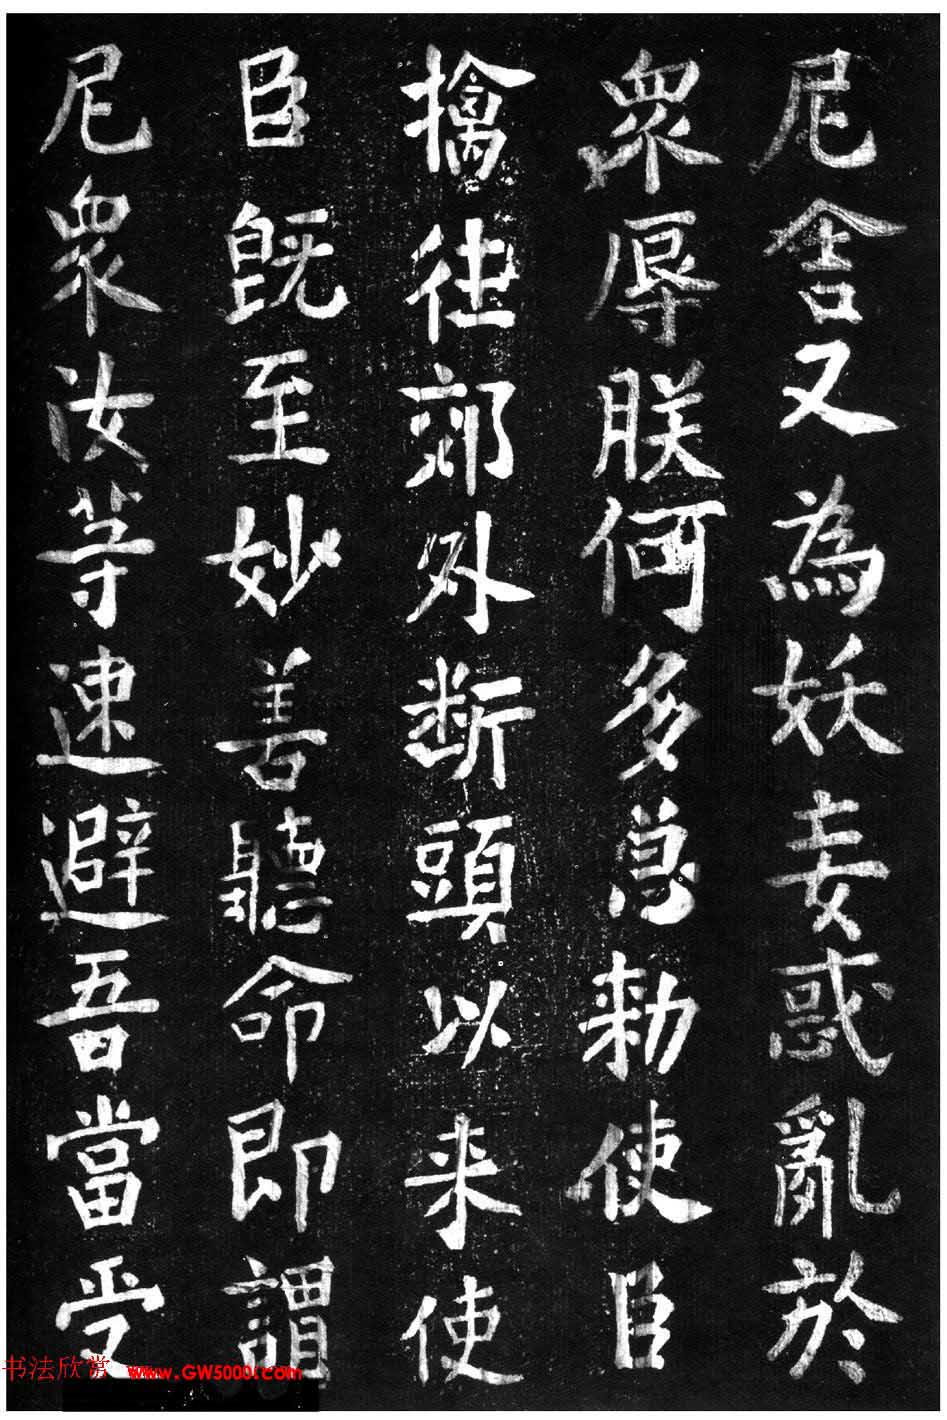 尼舍又為妖妾惑亂於
衆辱朕何多忽勑使臣
擒往郊外斷頭以来使
臣既至妙善聽命即謂
尼衆汝等速避吾當受
书法欣赏 www.GW5000.com